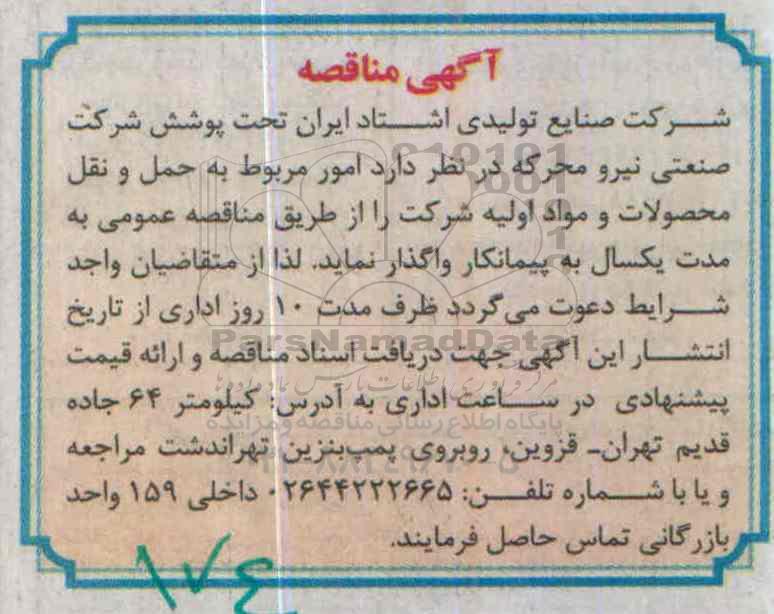 آگهی مناقصه
شرکت صنایع تولیدی اشتاد ایران تحت پوشش شرکت
صنعتی نیرو محرکه در نظر دارد امور مربوط به حمل و نقل
محصولات و مواد اولیه شرکت را از طریق مناقصه عمومی به
مدت یکسال به پیمانکار واگذار نماید. لذا از متقاضیان واجد
شرایط دعوت می‌گردد ظرف مدت ۱۰ روز اداری از تاریخ
انتشار این آگهی جهت دریافت اسناد مناقصه و ارائه قیمت
پیشنهادی در ساعت اداری به آدرس: کیلومتر ۶۴ جاده
قدیم تهران- قزوین، روبروی پمپ‌بنزین تهراندشت مراجعه
و یا با شماره تلفن: ۰۲۶۴۴۲۲۲۶۶۵ داخلی ۱۵۹ واحد
بازرگانی تماس حاصل فرمایند.
ParsNamadData
پایگاه اطلاع رسانی مناقصه و مزایده
۱۷٤